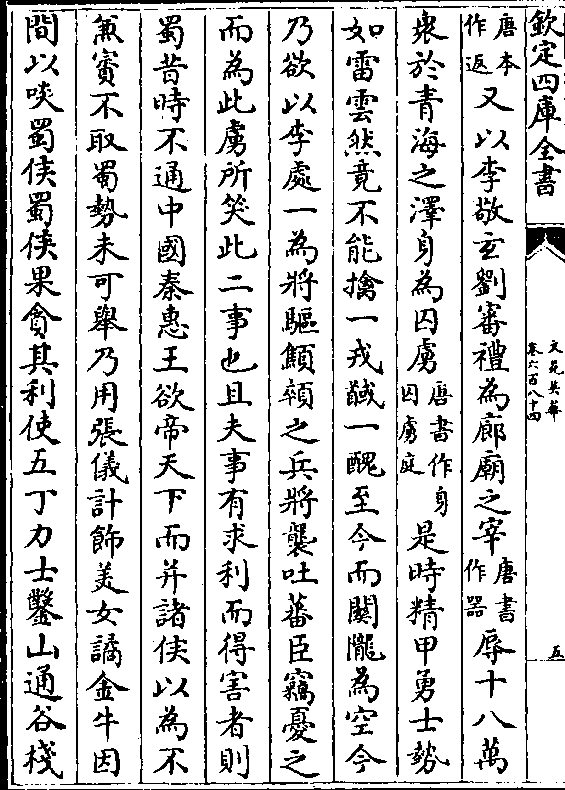 欽定四庫全書
文苑英華
卷六百八十四
五
唐本作返又以李敬玄劉審禮為廊廟之宰唐書作器辱十八萬
衆於青海之澤身為囚虜唐書作身囚虜庭是時精甲勇士勢
如雷雲然竟不能擒一戎馘一醜至今而關隴為空今
乃欲以李處一為將驅顦顇之兵將襲吐蕃臣竊憂之
而為此虜所笑此二事也且夫事有求利而得害者則
蜀昔時不通中國秦惠王欲帝天下而并諸侯以為不
兼賨不取蜀勢未可舉乃用張儀計飾美女譎金牛因
間以啖蜀侯蜀侯果貪其利使五丁力士鑿山通谷棧